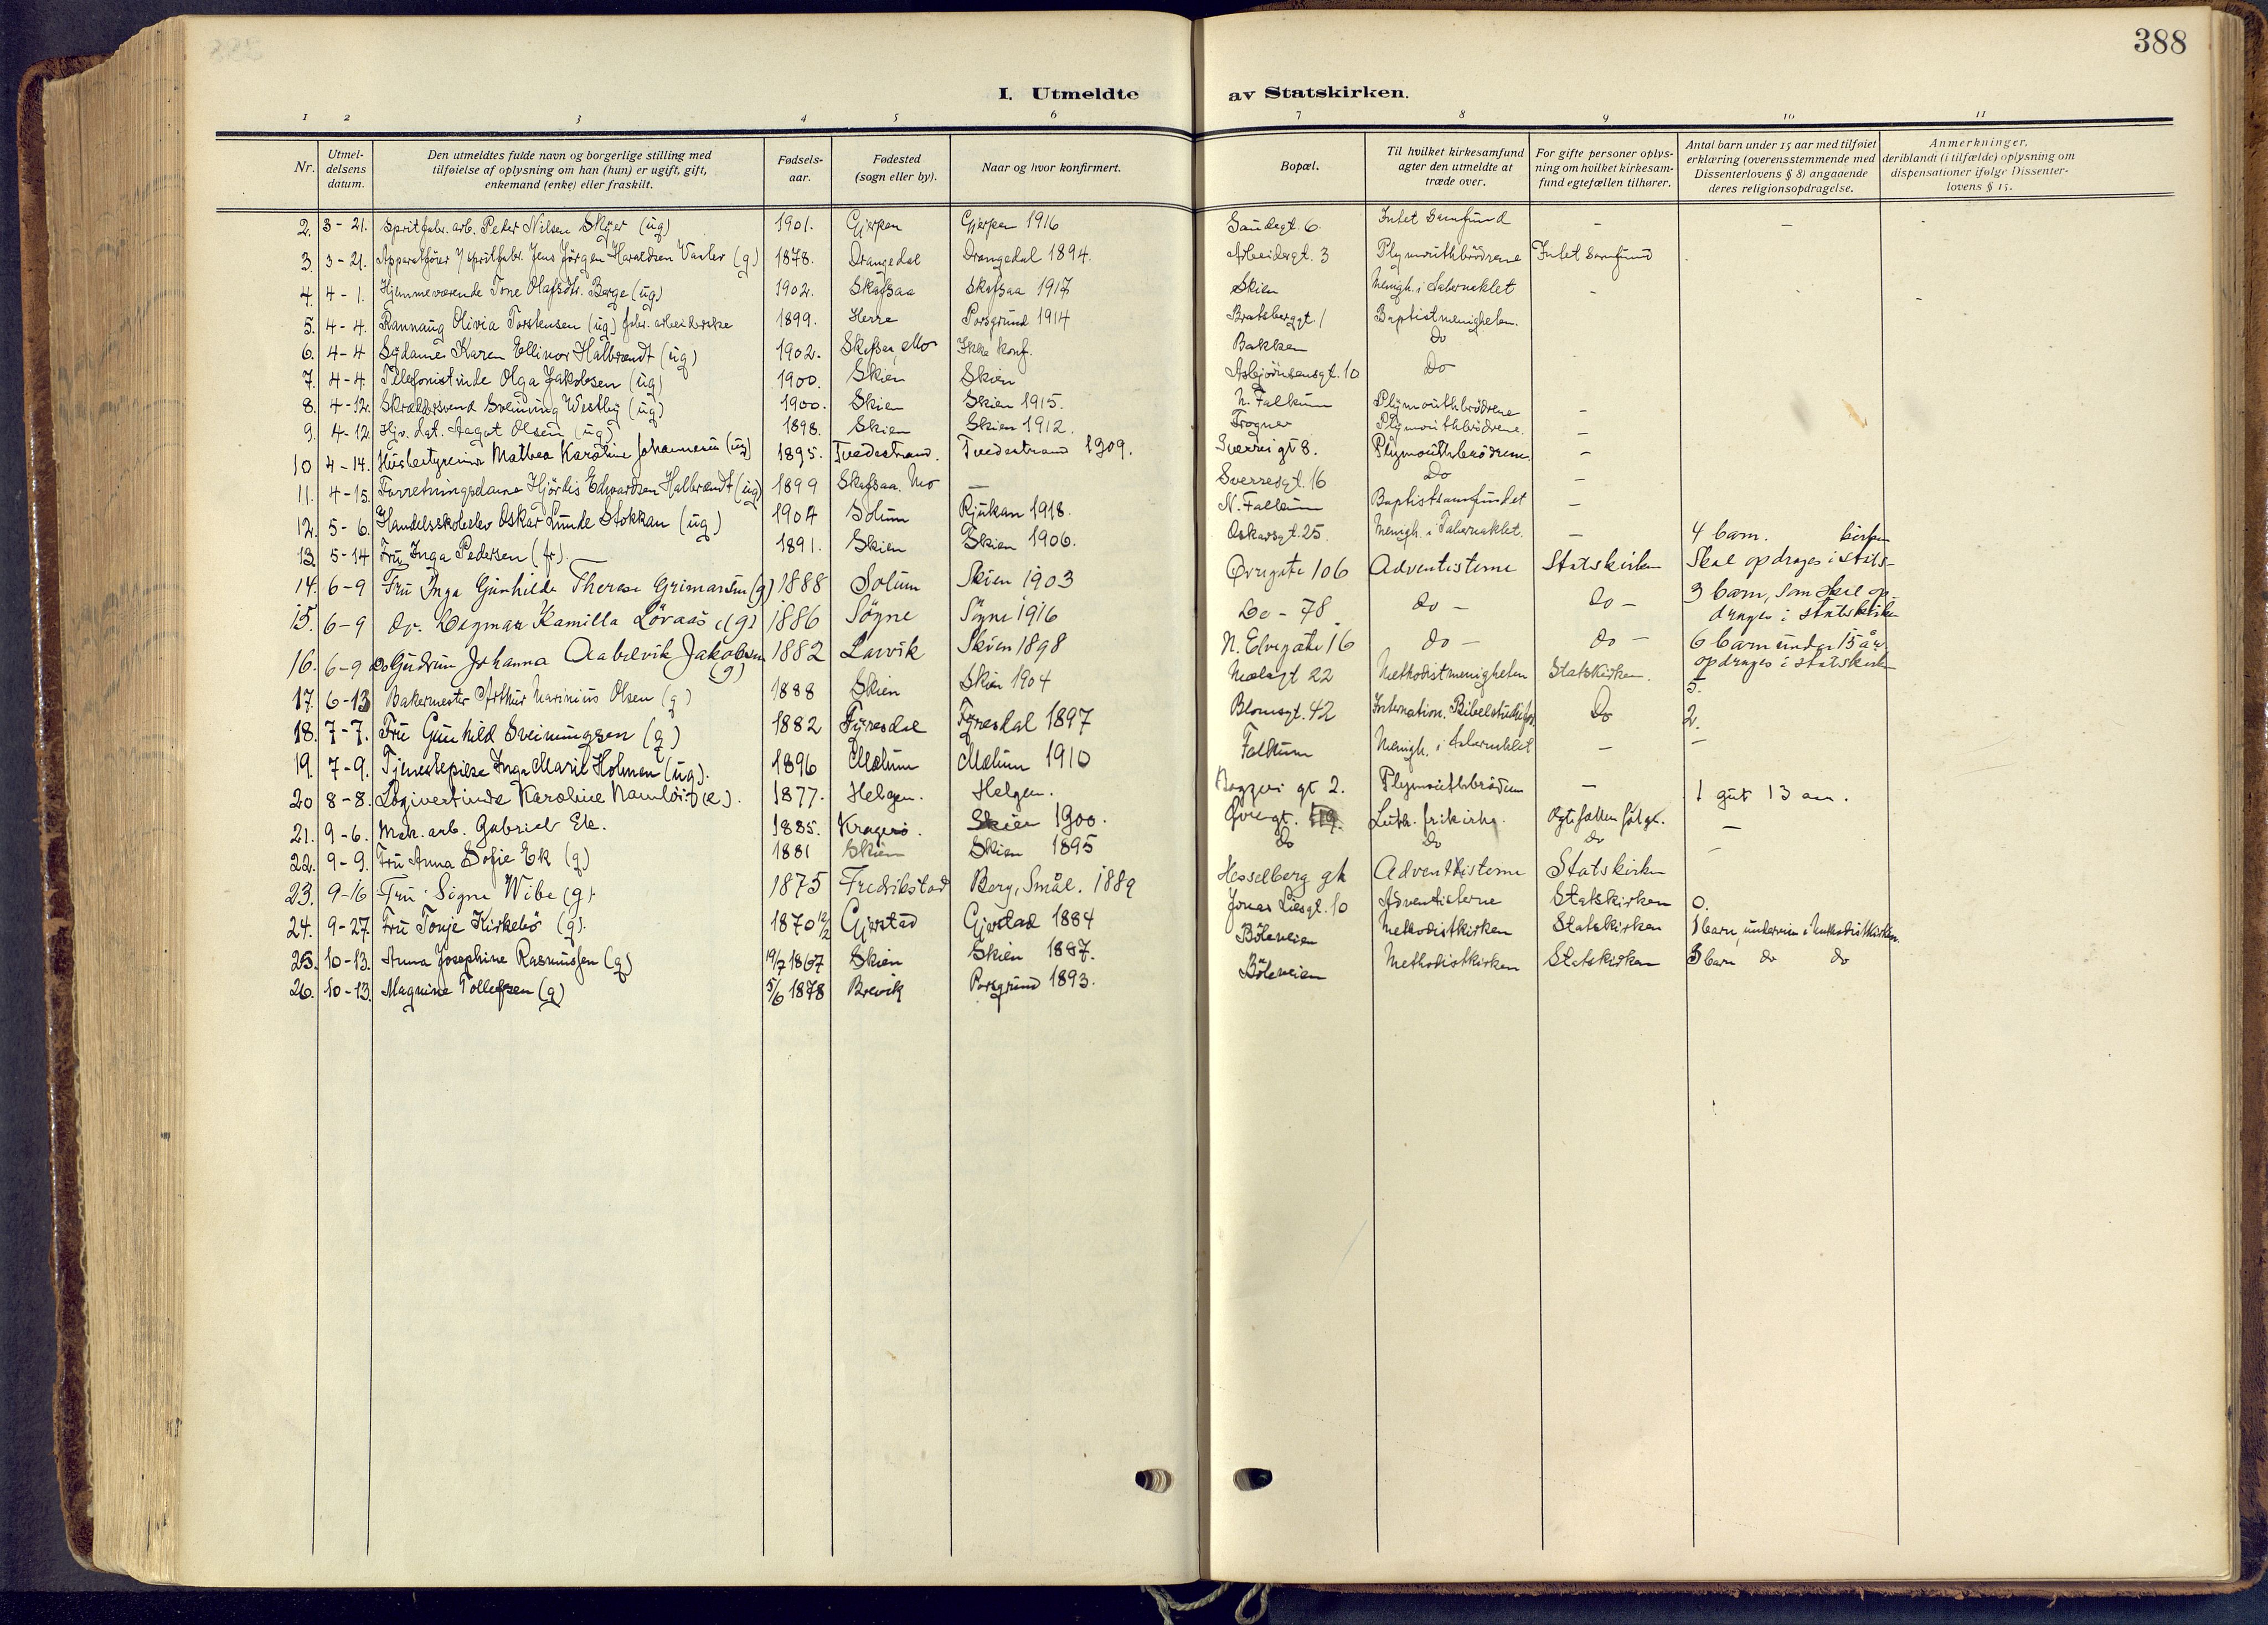 388
I. Utmeldte av Statskirken.
1 2 3 4 5 6 7 8 9 10 11
Nr.
Utmel-
delsens
datum.
Den utmeldtes fulde navn og borgerlige stilling med
tilføielse af oplysning om han (hun) er ugift, gift,
enkemand (enke) eller fraskilt.
Fødsels-
aar.
Fødested
(sogn eller by).
Naar og hvor konfirmert.
Bopæl.
Til hvilket kirkesamfund
agter den utmeldte at
træde over.
For gifte personer oplys-
ning om hvilket kirkesam-
fund egtefællen tilhører.
Antal barn under 15 aar med tilføiet
erklæring (overensstemmende med
Dissenterlovens § 8) angaaende
deres religionsopdragelse.
Anmerkninger,
deriblandt (i tilfælde) oplysning om
dispensationer ifølge Dissenter-
lovens § 15.
2. 3-21. Spritfabr. arb. Peder Nilsen (ug) 1901. Gjerpen Gjerpen 1916 6. Intet Samfund - -
3. 3-21. Apparatfører v/ spritfabr. Jens Jörgen Haraldsen (g) 1878. Drangedal Drangedal 1894. Arbeidergt. 3 Plymouthbrödrene Intet Samfund
4. 4-1. Hjemmeværende Tone Olafsdtr. Berge (ug) 1902. Skafsaa Skafsaa 1917 Skien Menigh. i Tabernaklet -
5. 4-4. Rannaug Olivia Torstensen (ug) fabr. arbeiderske 1899. Herre Porsgrund 1914 Bratsberggt. 1 Baptistmenigheten.
6. 4-4 Sydame Karen Ellinor Halbrendt (ug) 1902. Skafsaa, Mo Ikke konf. Bakken Do
7. 4-4. Telefonistinde Olga Jakobsen (ug) 1900. Skien Skien Asbjörnsensgt. 10 Do
8. 4-12. Skræddersvend Sveinung Westby (ug) 1900. Skien Skien 1915. N. Falkum Plymouthbrödrene -
9. 4-12. Hjv. dat. Aagot Olsen (ug) 1898. Skien Skien 1912. Frogner Plymouthbrödrene. -
10 4-14. Husbestyrerinde Mathea Karoline Johannesen (ug) 1895. Tvedestrand. Tvedestrand 1909. Sverresgt 8. Plymouthbrödrene. -
11. 4-15. Forretningsdame Hjördis Edvardsen Halbrendt (ug) 1899 Skafsaa. Mo - Sverresgt. 16 Do -
12. 5-6. Handelsskoleelev Oskar Lunde Stokkan (ug) 1904 Solum Rjukan 1918. N. Falkum Baptistsamfundet -
13 5-14 Fru Inga Pedersen (fr). 1891. Skien Skien 1906. Oskarsgt. 25. Menigh. i Tabernaklet. - 4 barn.
14. 6-9 Fru Inga Gunhilde Therese (g) 1888 Solum Skien 1903 Övregate 106 Adventisterne Statskirken Skal opdrages i stats- kirken
15. 6-9 do. Dagmar Kamilla Lövaas (g) 1886 Søgne Søgne 1916 Do - 78. do - do - 3 barn, som skal op-
drages i statskirken
16. 6-9 Do Gudrun Johanna Jakobsen (g) 1882 Larvik Skien 1898 N. Elvegate 16 do - do - 6 barn under 15 år,
opdrages i statskirken
17. 6-13 Bakermester Arthur Marinius Olsen (g) 1888 Skien Skien 1904 Mælagt 22 Methodistmenigheten Statskirken. 5.
18. 7-7. Fru Gunhild Sveinungsen (g) 1882 Fyresdal Fyresdal 1897 Blomsgt. 42 Internation. Do 2.
19. 7-9. Tjenestepike Inga Marie Holmen (ug). 1896 Mælum Mælum 1910 Falkum Menigh. i Tabernaklet - -
20 8-8. Logivertinde Karoline (e). 1877. Helgen. Helgen. gt 2. Plymouthbrödrene - 1 gut 13 aar.
21. 9-6. Mek. arb. Gabriel Ek. 1885. Kragerö. Skien 1900. Luth. frikirke. -
22. 9-9. Fru Anna Sofie Ek (g) 1881 Skien Skien 1895 Do Do Do -
23. 9-16 Fru Signe Wibe (g). 1875 Fredrikstad Berg, Smål. 1889 Hesselberg gt Adventisterne Statskirken
24. 9-27. Fru Tonje Kirkebö (g). 1870 12/2 Gjerstad Gjerstad 1884 Jonas Liesgt. 10 Adventisterne Statskirken 0.
25. 10-13. Anna Josephine Rasmussen (g) 19/7 1867 Skien Skien 1887. Böleveien Methodistkirken Statskirken 1 barn, undervises i Methodistkirken.
26. 10-13. Magnine Tollefsen (g) 5/6 1878 Brevik Porsgrund 1893. Böleveien Methodistkirken Statskirken 3 barn do do